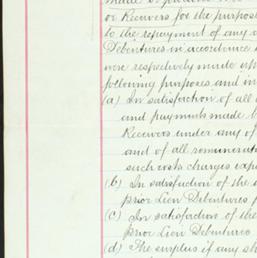 made
or Receivers for the purpos
to the repayment of any
Debentures in accordance
were respectively made
following purposes and in
(a) In satisfaction of all
and payments made b
Receivers under any of
and of all remunerat
such costs charges exp
(b) In satisfaction of the
prior Lien Debentures
(c) In satisfaction of the
prior Lien Debentures
(d) The surplus if any sh